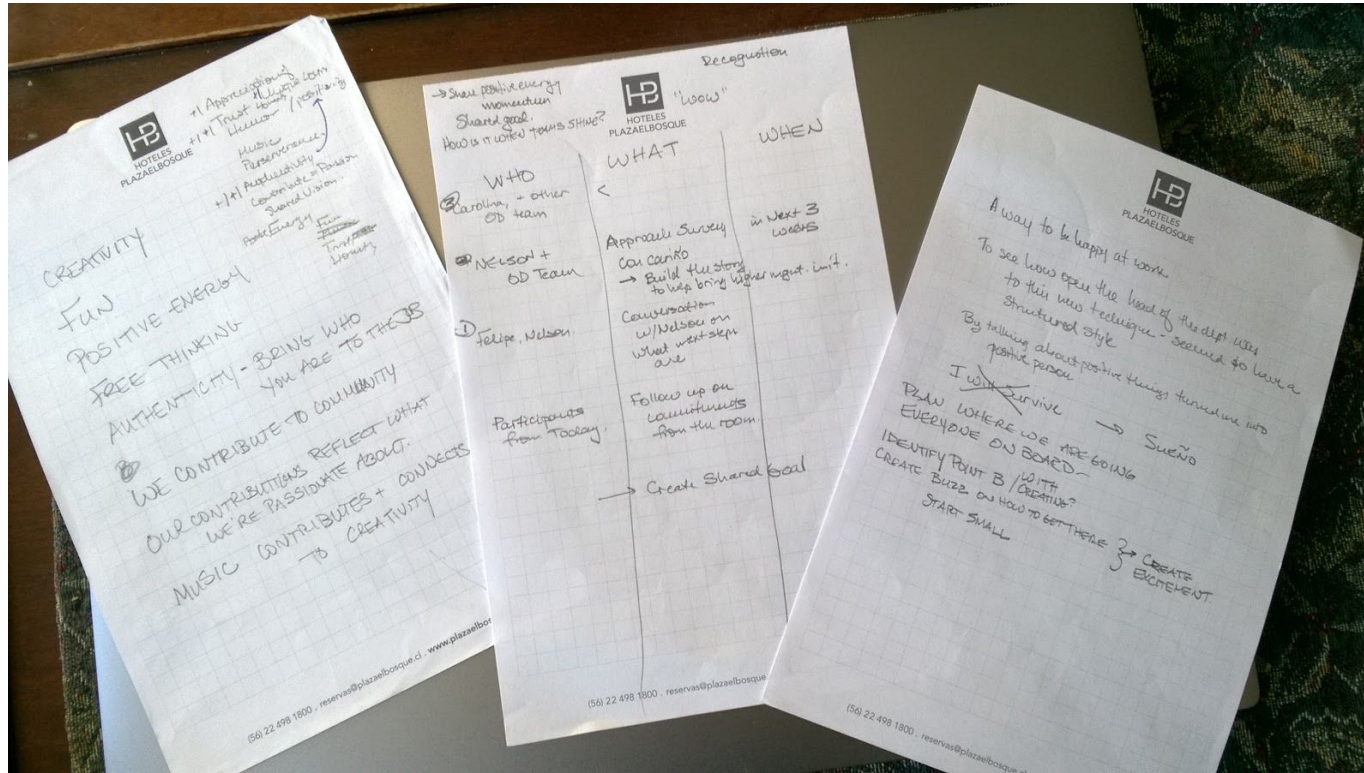 +1 Appreciation
+1+1 Trust
Humor / positivity
Music
Perserverance
+1+1 Productivity
Contribute = Passion
Shared Vision.
Energy
Fun
Trust
Honesty
HB
HOTELES
PLAZAELBOSQUE
CREATIVITY
FUN
POSITIVE ENERGY
FREE THINKING
AUTHENTICITY - BRING WHO
YOU ARE TO THE JOB
WE CONTRIBUTE TO COMMUNITY
OUR CONTRIBUTIONS REFLECT WHAT
WE'RE PASSIONATE ABOUT.
MUSIC CONTRIBUTES + CONNECTS
TO CREATIVITY
(56) 22 498 1800 . reservas@plazaelbosque.cl . www.plazaelbos
Recognition
→ Share positive energy
momentum
Shared goal.
How is it when teams SHINE?
HB "WOW"
HOTELES
PLAZAELBOSQUE
WHO WHAT WHEN
② Carolina, + other
OD team
<
Nelson +
OD Team
Approach Survey
con cariño
→ Build the story
to help bring higher mgmt. in it.
in Next 3
weeks
① Felipe, Nelson.
Conversation
w/Nelson on
what next steps
are
Participants
from Today.
Follow up on
commitments
from the room.
→ Create Shared Goal
(56) 22 498 1800 . reservas@plazaelbosque
HB
HOTELES
PLAZAELBOSQUE
A way to be happy at work
To see how open the head of the dept was
to this new technique - seemed to have a
structured style
By talking about positive things turned me into
positive person
I will Survive → SUEÑO
PLAN WHERE WE ARE GOING
EVERYONE ON BOARD -
IDENTIFY POINT B / WITH CREATING?
CREATE BUZZ ON HOW TO GET THERE } → CREATE
EXCITEMENT.
START SMALL
(56) 22 498 1800 . reservas@plazaelbosque.c